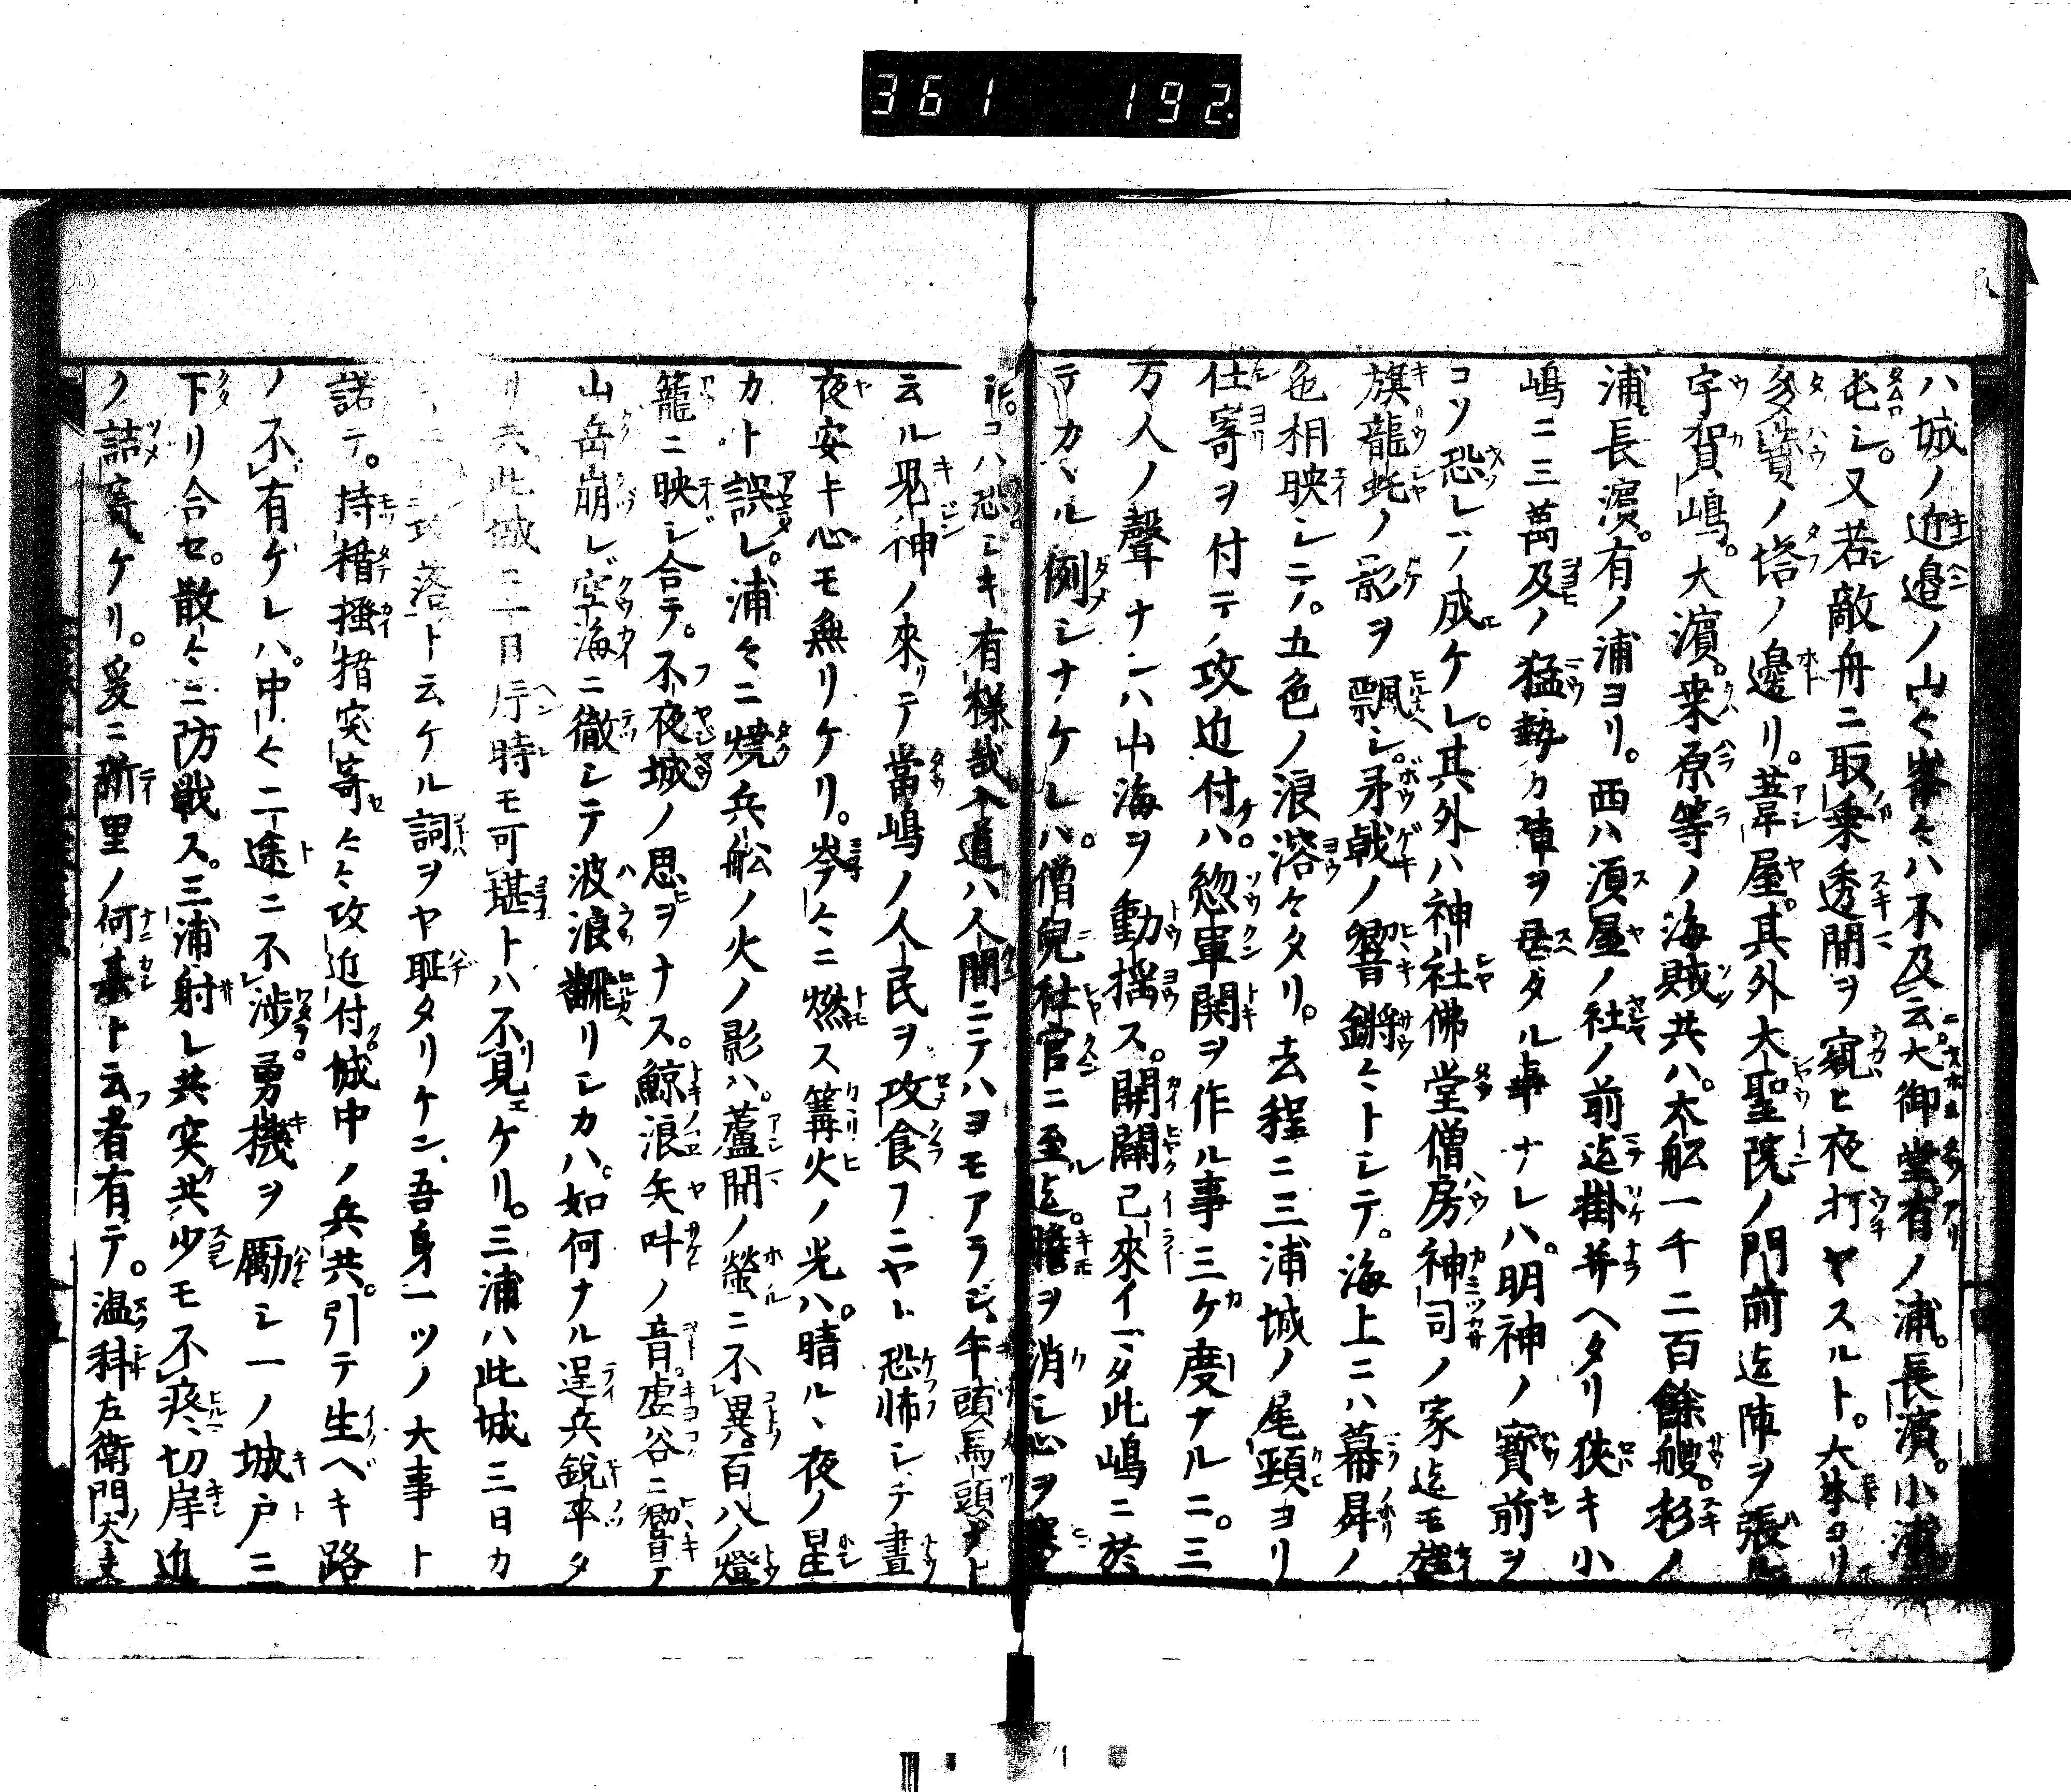 361 192.
ハ城ノ近邉ノ山々峯々ハ不及云ニ。大御堂。有ノ浦。長濱。小浦。
屯シ。又若敵舟ニ取乗透間ヲ窺ヒ夜打ヤスルト。大本ヨリ
多寳ノ塔ノ邊リ。葦屋。其外大聖院ノ門前迄陣ヲ張ル
宇賀嶋。大濵。桒原等ノ海賊共ハ。大舩一千二百餘艘。杉ノ
浦長濵。有ノ浦ヨリ。西ハ須屋ノ社ノ前迄掛并ヘタリ狹キ小
嶋ニ三萬及ノ猛勢カ陣ヲ居ダル事ナレハ。明神ノ寶前ヲ
コソ恐レテ成ケレ。其外ハ神社佛堂僧房神司ノ家迄モ
旗龍蛇ノ影ヲ飄シ。矛戟ノ響鏘々トシテ。海上ニハ幕舁ノ
色相映シテ。五色ノ浪溶々タリ。去程ニ三浦城ノ尾頸ヨリ
仕寄ヲ付テ攻近付ハ。惣軍鬨ヲ作ル事三ケ度ナルニ。三
万人ノ聲ナンハ山海ヲ動揺ス。開闢已來イマタ此嶋ニ於
テカヽル例シナケレハ。僧兒社官ニ至迄。膽ヲ消シ心ヲ
コハ恐シキ有様哉。人道ハ人間ニテハヨモアラジ、牛頭馬頭ナト
云ル鬼神ノ來リテ當嶋ノ人民ヲ攻食フニヤト恐怖シテ晝
夜安キ心モ無リケリ。岑々ニ燃ス篝火ノ光ハ。晴ルヽ夜ノ星
カト誤レ。浦々ニ燒兵舩ノ火ノ影ハ。蘆間ノ螢ニ不異。百八ノ燈
籠ニ映シ合テ。不夜城ノ思ヲナス。鯨浪矢叫ノ音。虚谷ニ響テ
山岳崩レ空海ニ徹シテ波浪飜リシカハ。如何ナル逞兵鋭卒タ
リ共此城ニ一日片時モ可堪トハ不見ケリ。三浦ハ此城三日カ
攻落ト云ケル詞ヲヤ耻タリケン、吾身一ツノ大事ト
諾テ。持楯掻楯突寄々々攻近付。城中ノ兵共。引テ生ベキ路
ノ不有ケレハ。中々二途ニ不渉。勇機ヲ勵シ一ノ城戸ニ
下リ合セ。散々ニ防戦ス。三浦射レ共突共少モ不疼、切岸近
ク詰寄ケリ。爰ニ新里ノ何某ト云者有テ。温科左衛門